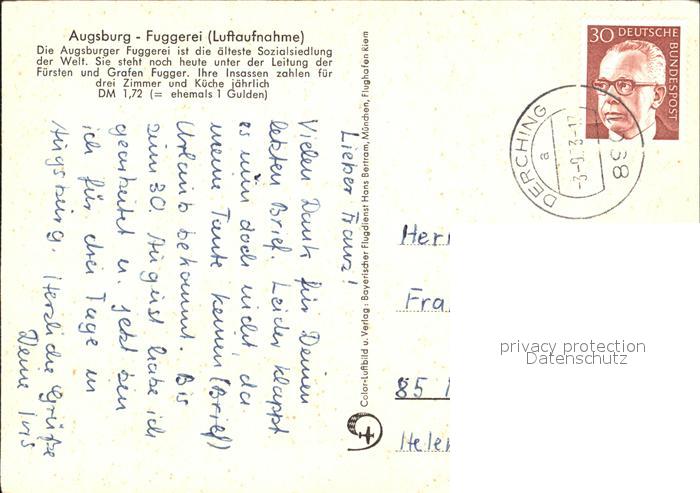 Augsburg - Fuggerei (Luftaufnahme)
Die Augsburger Fuggerei ist die älteste Sozialsiedlung
der Welt. Sie steht noch heute unter der Leitung der
Fürsten und Grafen Fugger. Ihre Insassen zahlen für
drei Zimmer und Küche jährlich
DM 1,72 (= ehemals 1 Gulden)
Lieber Franz!
Vielen Dank für Deinen
letzten Brief. Leider klappt
es nun doch nicht, da
meine Tante keinen (Brief)
Urlaub bekommt. Bis
zum 30. August habe ich
gearbeitet u. jetzt bin
ich für drei Tage in
Augsburg. Herzliche Grüße
Deine
Color-Luftbild u. Verlag: Bayerischer Flugdienst Hans Bertram, München, Flughafen Riem
30 DEUTSCHE
BUNDESPOST
DERCHING
a
Her
Fra
85
Helen
privacy protection
Datenschutz